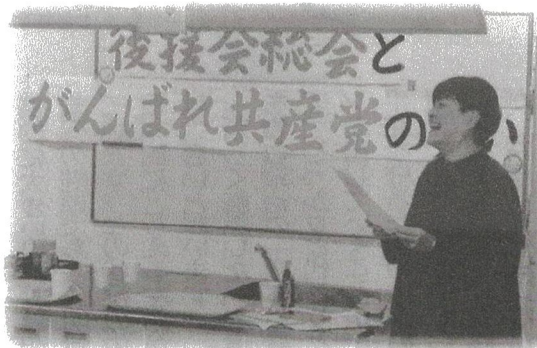 後援会総会と
がんばれ共産党の い